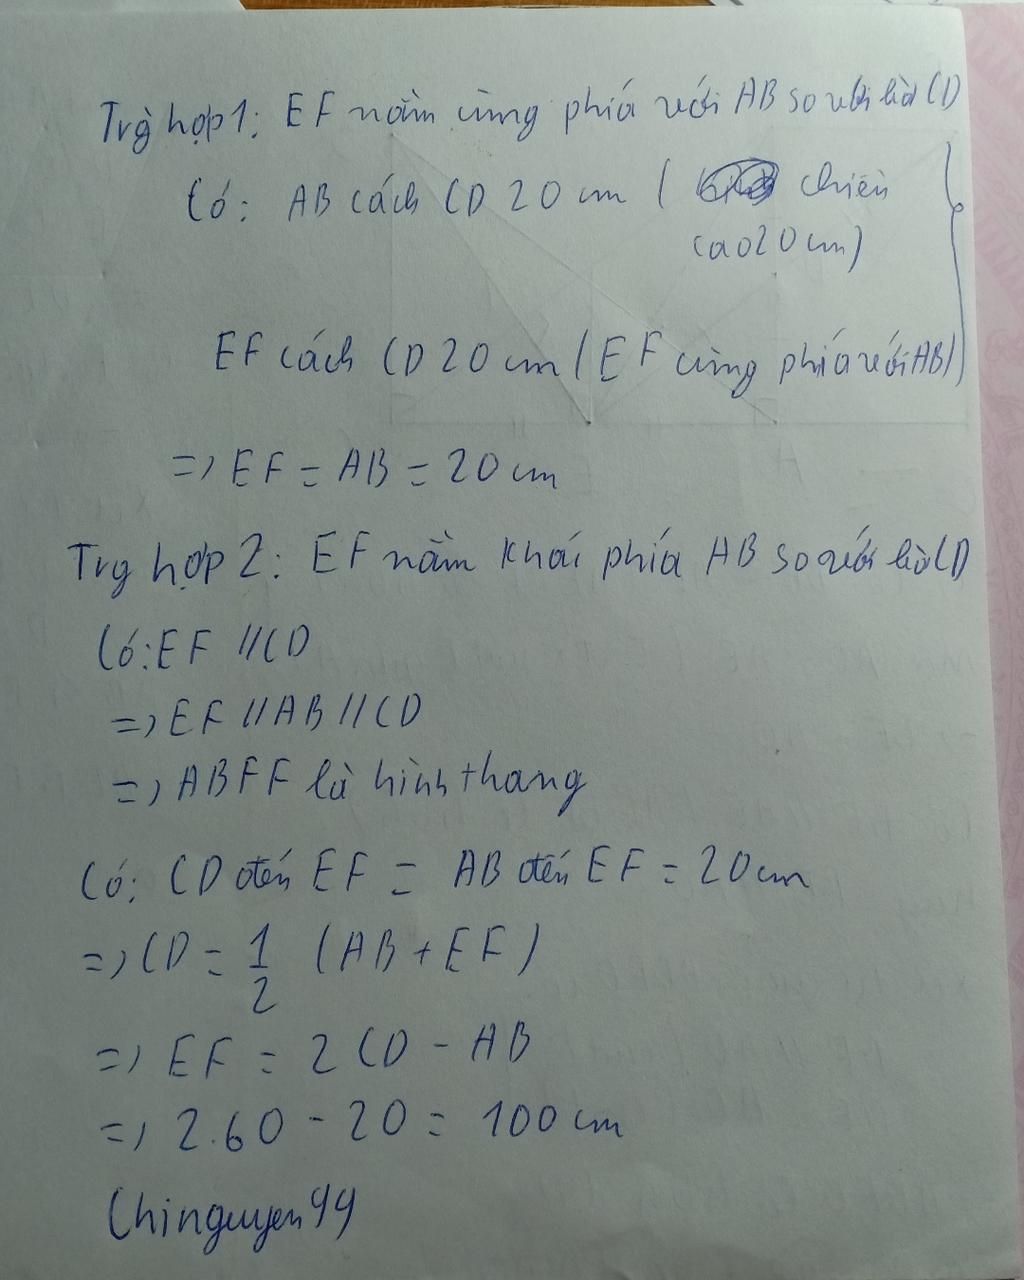 Trg hợp 1: EF nằm cùng phía với AB so với bờ CD
Có: AB cách CD 20 cm ( chiều
cao 20 cm)
EF cách CD 20 cm (EF cùng phía với AB)
=> EF = AB = 20 cm
Trg hợp 2: EF nằm khác phía AB so với bờ CD
Có: EF // CD
=> EF // AB // CD
=> ABFF là hình thang
Có: CD đến EF = AB đến EF = 20 cm
=> CD = 1/2 (AB + EF)
=> EF = 2 CD - AB
=> 2.60 - 20 = 100 cm
Chinguyen99